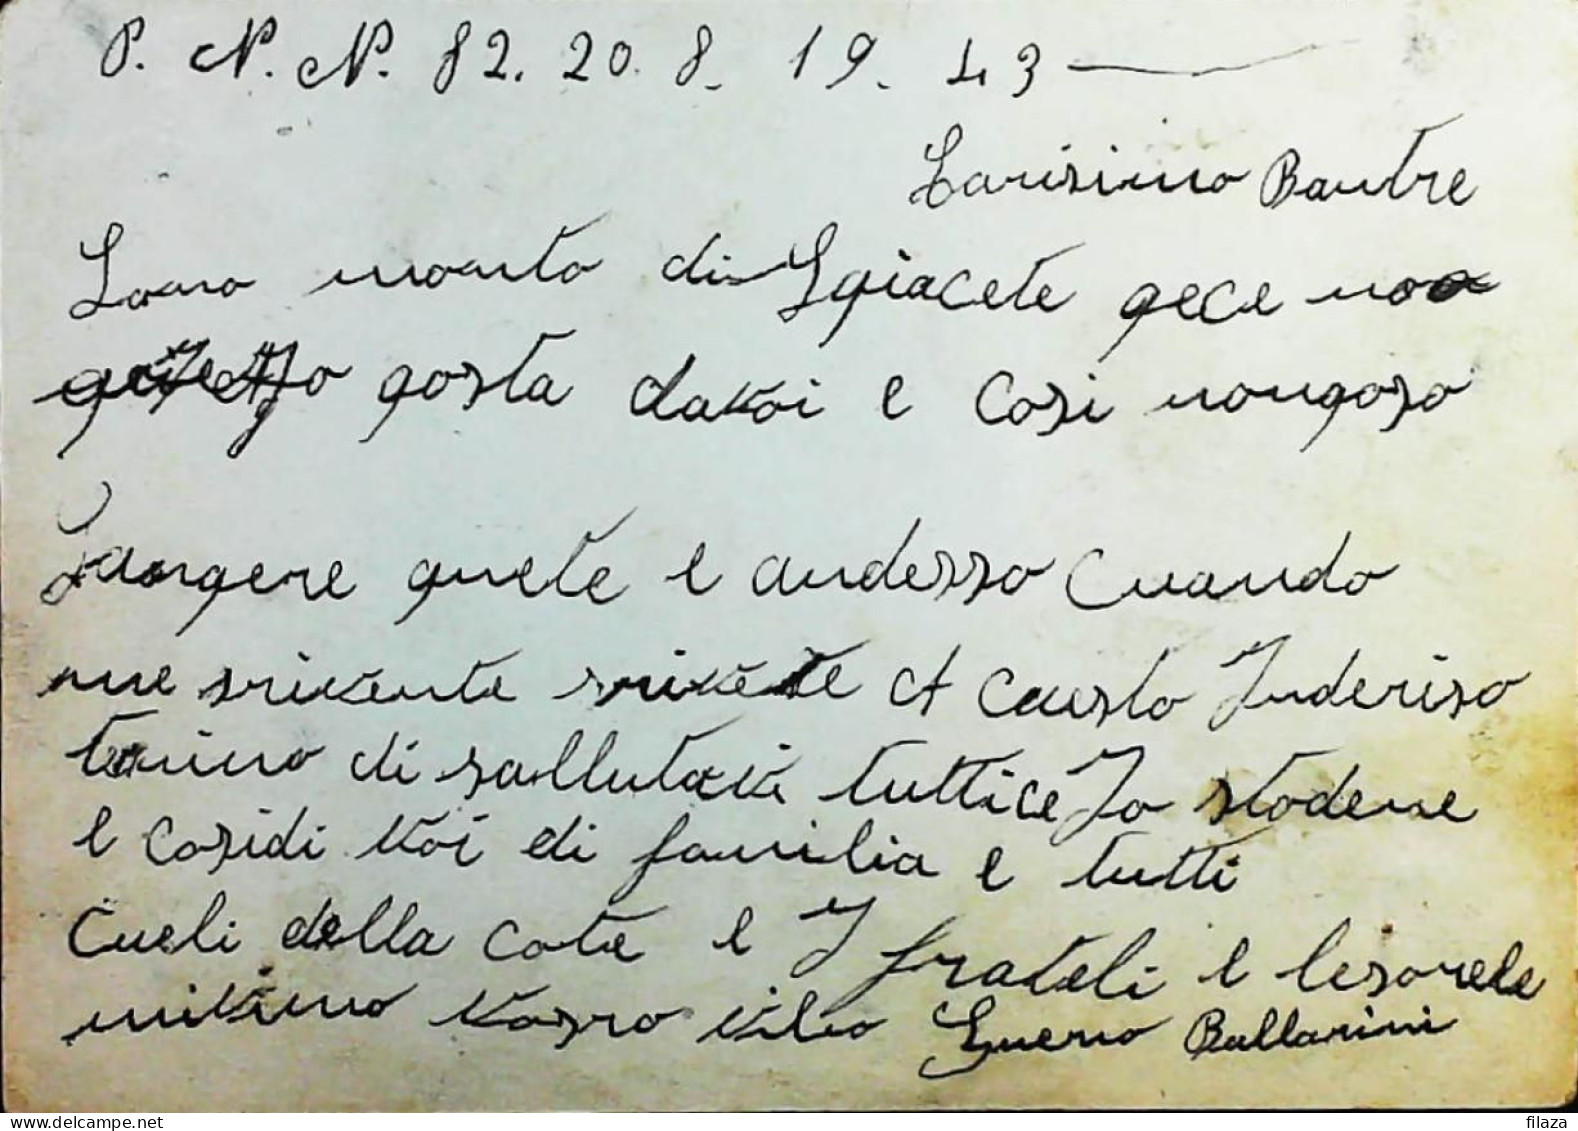 P. N. N. 82. 20. 8. 19. 43
Carisimo Bautre
Sono monto di Spiacete pece no
posta davoi e Cosi nonposo
quete e andesso Cuando
me srivente srivete A Cuesto Inderiso
termino di sallutavi tuttice Io stodene
e Cosidi voi di familia e tutti
Cueli della cote e I frateli e lesorele
mikimo vosro Guerno Ballarini
filaza